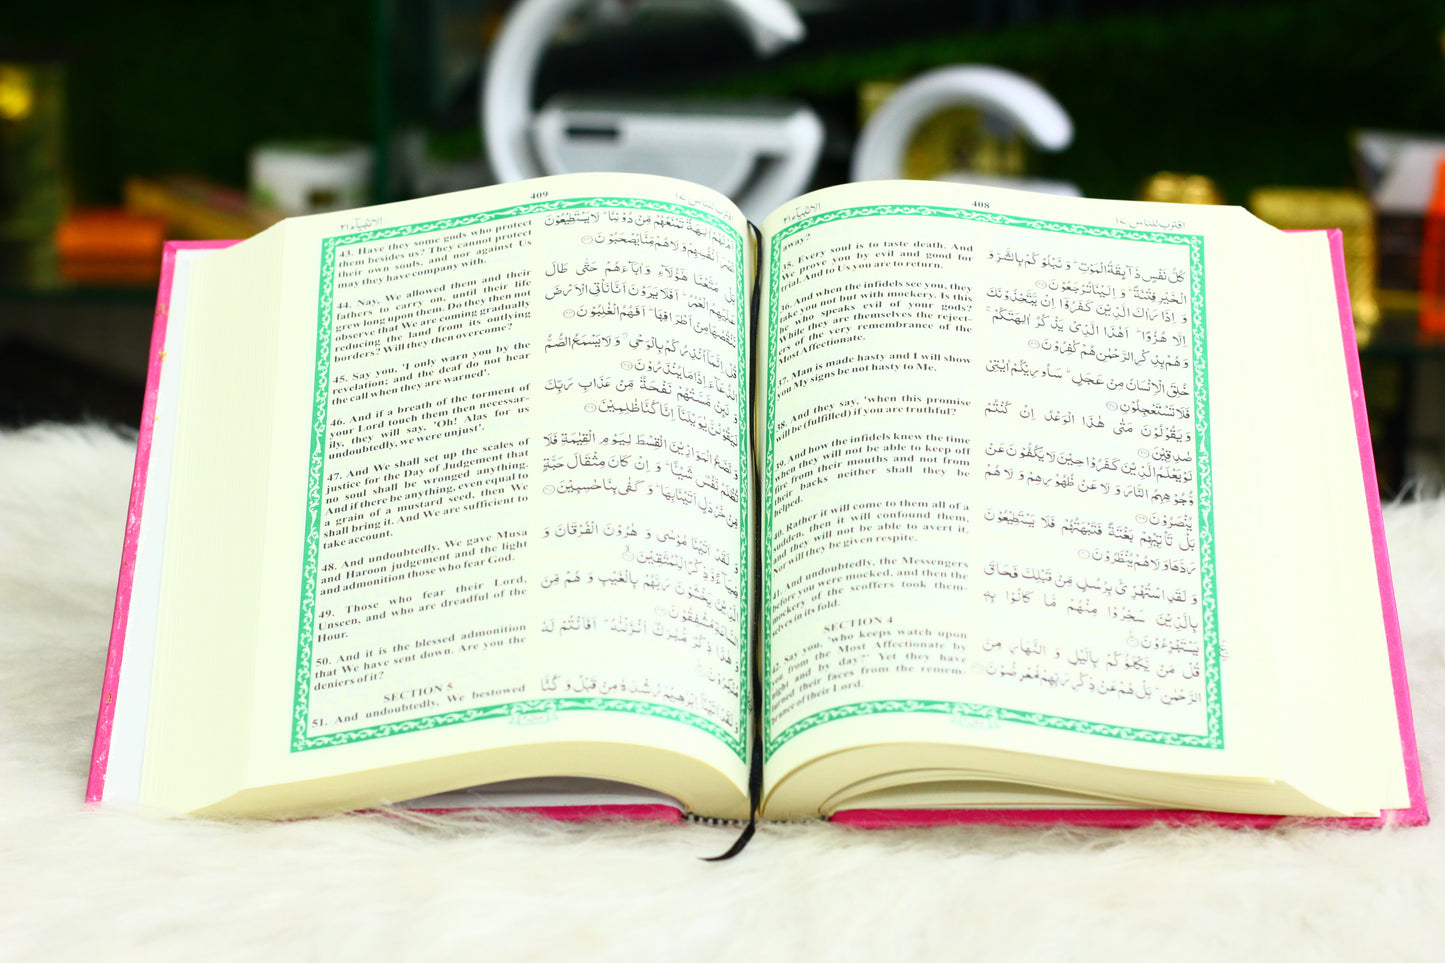 408
الانبياء ٢١
اقترب للناس ١٧
away?
35. Every soul is to taste death. And
We prove you by evil and good for
trial. And to Us you are to return.
36. And when the infidels see you, they
take you not but with mockery. Is this
he who speaks evil of your gods?
While they are themselves the reject-
ers of the very remembrance of the
Most Affectionate.
37. Man is made hasty and I will show
you My signs be not hasty to Me.
38. And they say, 'when this promise
will be (fulfilled) if you are truthful?
39. And how the infidels knew the time
when they will not be able to keep off
fire from their mouths and not from
their backs neither shall they be
helped.
40. Rather it will come to them all of a
sudden, then it will confound them,
and they will not be able to avert it.
Nor will they be given respite.
41. And undoubtedly, the Messengers
before you were mocked, and then the
mockery of the scoffers took them-
selves in its fold.
SECTION 4
42. Say you, 'who keeps watch upon
you from the Most Affectionate by
night and by day?' Yet they have
turned their faces from the remem-
brance of their Lord.
كُلُّ نَفْسٍ ذَآئِقَةُ الْمَوْتِ ؕ وَ نَبْلُوْكُمْ بِالشَّرِّ وَ
الْخَيْرِ فِتْنَةً ؕ وَ اِلَيْنَا تُرْجَعُوْنَ
وَ اِذَا رَاٰكَ الَّذِيْنَ كَفَرُوْۤا اِنْ يَّتَّخِذُوْنَكَ
اِلَّا هُزُوًا ؕ اَهٰذَا الَّذِيْ يَذْكُرُ اٰلِهَتَكُمْ ۚ
وَ هُمْ بِذِكْرِ الرَّحْمٰنِ هُمْ كٰفِرُوْنَ
خُلِقَ الْاِنْسَانُ مِنْ عَجَلٍ ؕ سَاُورِيْكُمْ اٰيٰتِيْ
فَلَا تَسْتَعْجِلُوْنِ
وَ يَقُوْلُوْنَ مَتٰى هٰذَا الْوَعْدُ اِنْ كُنْتُمْ
صٰدِقِيْنَ
لَوْ يَعْلَمُ الَّذِيْنَ كَفَرُوْا حِيْنَ لَا يَكُفُّوْنَ عَنْ
وُّجُوْهِهِمُ النَّارَ وَ لَا عَنْ ظُهُوْرِهِمْ وَ لَا هُمْ
يُنْصَرُوْنَ
بَلْ تَاْتِيْهِمْ بَغْتَةً فَتَبْهَتُهُمْ فَلَا يَسْتَطِيْعُوْنَ
رَدَّهَا وَ لَا هُمْ يُنْظَرُوْنَ
وَ لَقَدِ اسْتُهْزِئَ بِرُسُلٍ مِّنْ قَبْلِكَ فَحَاقَ
بِالَّذِيْنَ سَخِرُوْا مِنْهُمْ مَّا كَانُوْا بِهٖ
يَسْتَهْزِءُوْنَ
قُلْ مَنْ يَّكْلَؤُكُمْ بِالَّيْلِ وَ النَّهَارِ مِنَ
الرَّحْمٰنِ ؕ بَلْ هُمْ عَنْ ذِكْرِ رَبِّهِمْ مُّعْرِضُوْنَ
409
الانبياء ٢١
اقترب للناس ١٧
43. Have they some gods who protect
them besides us? They cannot protect
their own souls, and nor against Us
may they have company with.
44. Nay, We allowed them and their
fathers to carry on, until their life
grew long upon them. Do they then not
observe that We are coming gradually
reducing the land from its outlying
borders? Will they then overcome?
45. Say you, 'I only warn you by the
revelation; and the deaf do not hear
the call when they are warned'.
46. And if a breath of the torment of
your Lord touch them then necessar-
ily, they will say, 'Oh! Alas for us
undoubtedly, we were unjust'.
47. And We shall set up the scales of
justice for the Day of Judgement that
no soul shall be wronged anything.
And if there be anything, even equal to
a grain of a mustard seed, then We
shall bring it. And We are sufficient to
take account.
48. And undoubtedly, We gave Musa
and Haroon judgement and the light
and admonition those who fear God.
49. Those who fear their Lord,
Unseen, and who are dreadful of the
Hour.
50. And it is the blessed admonition
that We have sent down. Are you the
deniers of it?
SECTION 5
51. And undoubtedly, We bestowed
اَمْ لَهُمْ اٰلِهَةٌ تَمْنَعُهُمْ مِّنْ دُوْنِنَا ؕ لَا يَسْتَطِيْعُوْنَ
نَصْرَ اَنْفُسِهِمْ وَ لَا هُمْ مِّنَّا يُصْحَبُوْنَ
بَلْ مَتَّعْنَا هٰۤؤُلَآءِ وَ اٰبَآءَهُمْ حَتّٰى طَالَ
عَلَيْهِمُ الْعُمُرُ ؕ اَفَلَا يَرَوْنَ اَنَّا نَاْتِي الْاَرْضَ
نَنْقُصُهَا مِنْ اَطْرَافِهَا ؕ اَفَهُمُ الْغٰلِبُوْنَ
قُلْ اِنَّمَاۤ اُنْذِرُكُمْ بِالْوَحْيِ ۖ وَ لَا يَسْمَعُ الصُّمُّ
الدُّعَآءَ اِذَا مَا يُنْذَرُوْنَ
وَ لَئِنْ مَّسَّتْهُمْ نَفْحَةٌ مِّنْ عَذَابِ رَبِّكَ
لَيَقُوْلُنَّ يٰوَيْلَنَاۤ اِنَّا كُنَّا ظٰلِمِيْنَ
وَ نَضَعُ الْمَوَازِيْنَ الْقِسْطَ لِيَوْمِ الْقِيٰمَةِ فَلَا
تُظْلَمُ نَفْسٌ شَيْئًا ؕ وَ اِنْ كَانَ مِثْقَالَ حَبَّةٍ
مِّنْ خَرْدَلٍ اَتَيْنَا بِهَا ؕ وَ كَفٰى بِنَا حٰسِبِيْنَ
وَ لَقَدْ اٰتَيْنَا مُوْسٰى وَ هٰرُوْنَ الْفُرْقَانَ وَ
ضِيَآءً وَّ ذِكْرًا لِّلْمُتَّقِيْنَ
الَّذِيْنَ يَخْشَوْنَ رَبَّهُمْ بِالْغَيْبِ وَ هُمْ مِّنَ
السَّاعَةِ مُشْفِقُوْنَ
وَ هٰذَا ذِكْرٌ مُّبٰرَكٌ اَنْزَلْنٰهُ ؕ اَفَاَنْتُمْ لَهٗ
مُنْكِرُوْنَ
وَ لَقَدْ اٰتَيْنَاۤ اِبْرٰهِيْمَ رُشْدَهٗ مِنْ قَبْلُ وَ كُنَّا